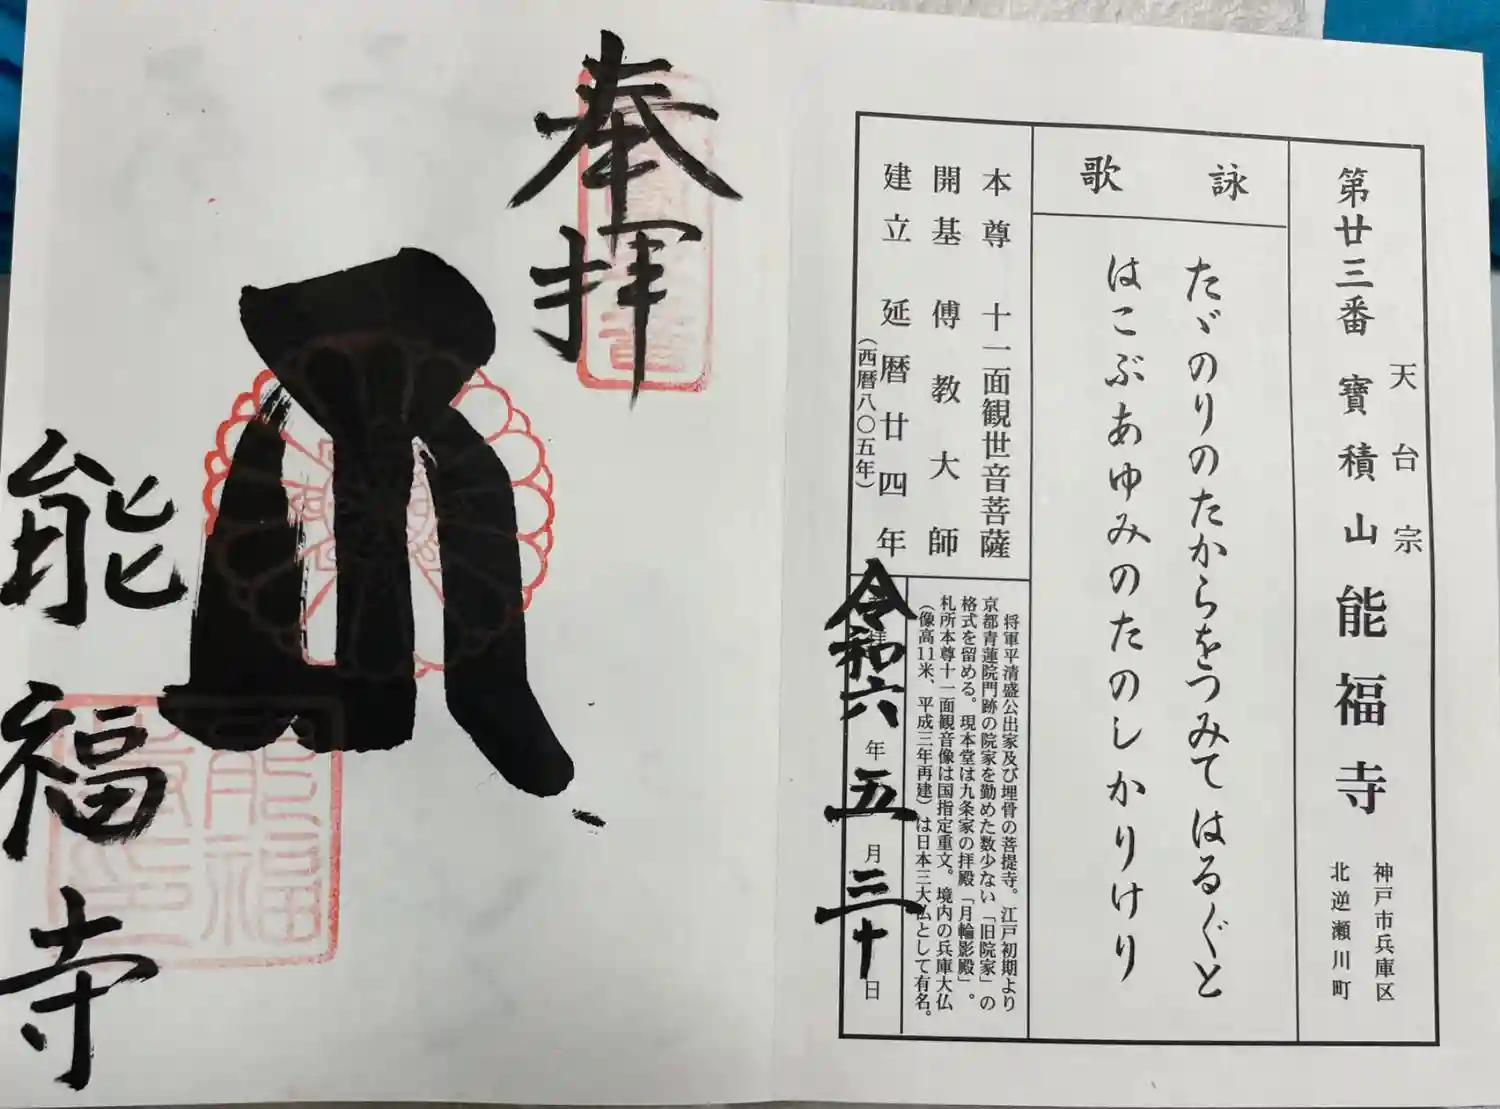 第廿三番 寶積山 能福寺
天台宗
神戸市兵庫区
北逆瀬川町
詠歌
たゞのりのたからをつみてはるぐと
はこぶあゆみのたのしかりけり
本尊 十一面観世音菩薩
開基 傅教大師
建立 延暦廿四年
(西暦八〇五年)
将軍平清盛公出家及び埋骨の菩提寺。江戸初期より
京都青蓮院門跡の院家を勤めた数少ない「旧院家」の
格式を留める。現本堂は九条家の拝殿「月輪影殿」。
札所本尊十一面観音像は国指定重文。境内の兵庫大仏
(像高11米、平成三年再建)は日本三大仏として有名。
令和六年五月三十日
奉拝
能福寺